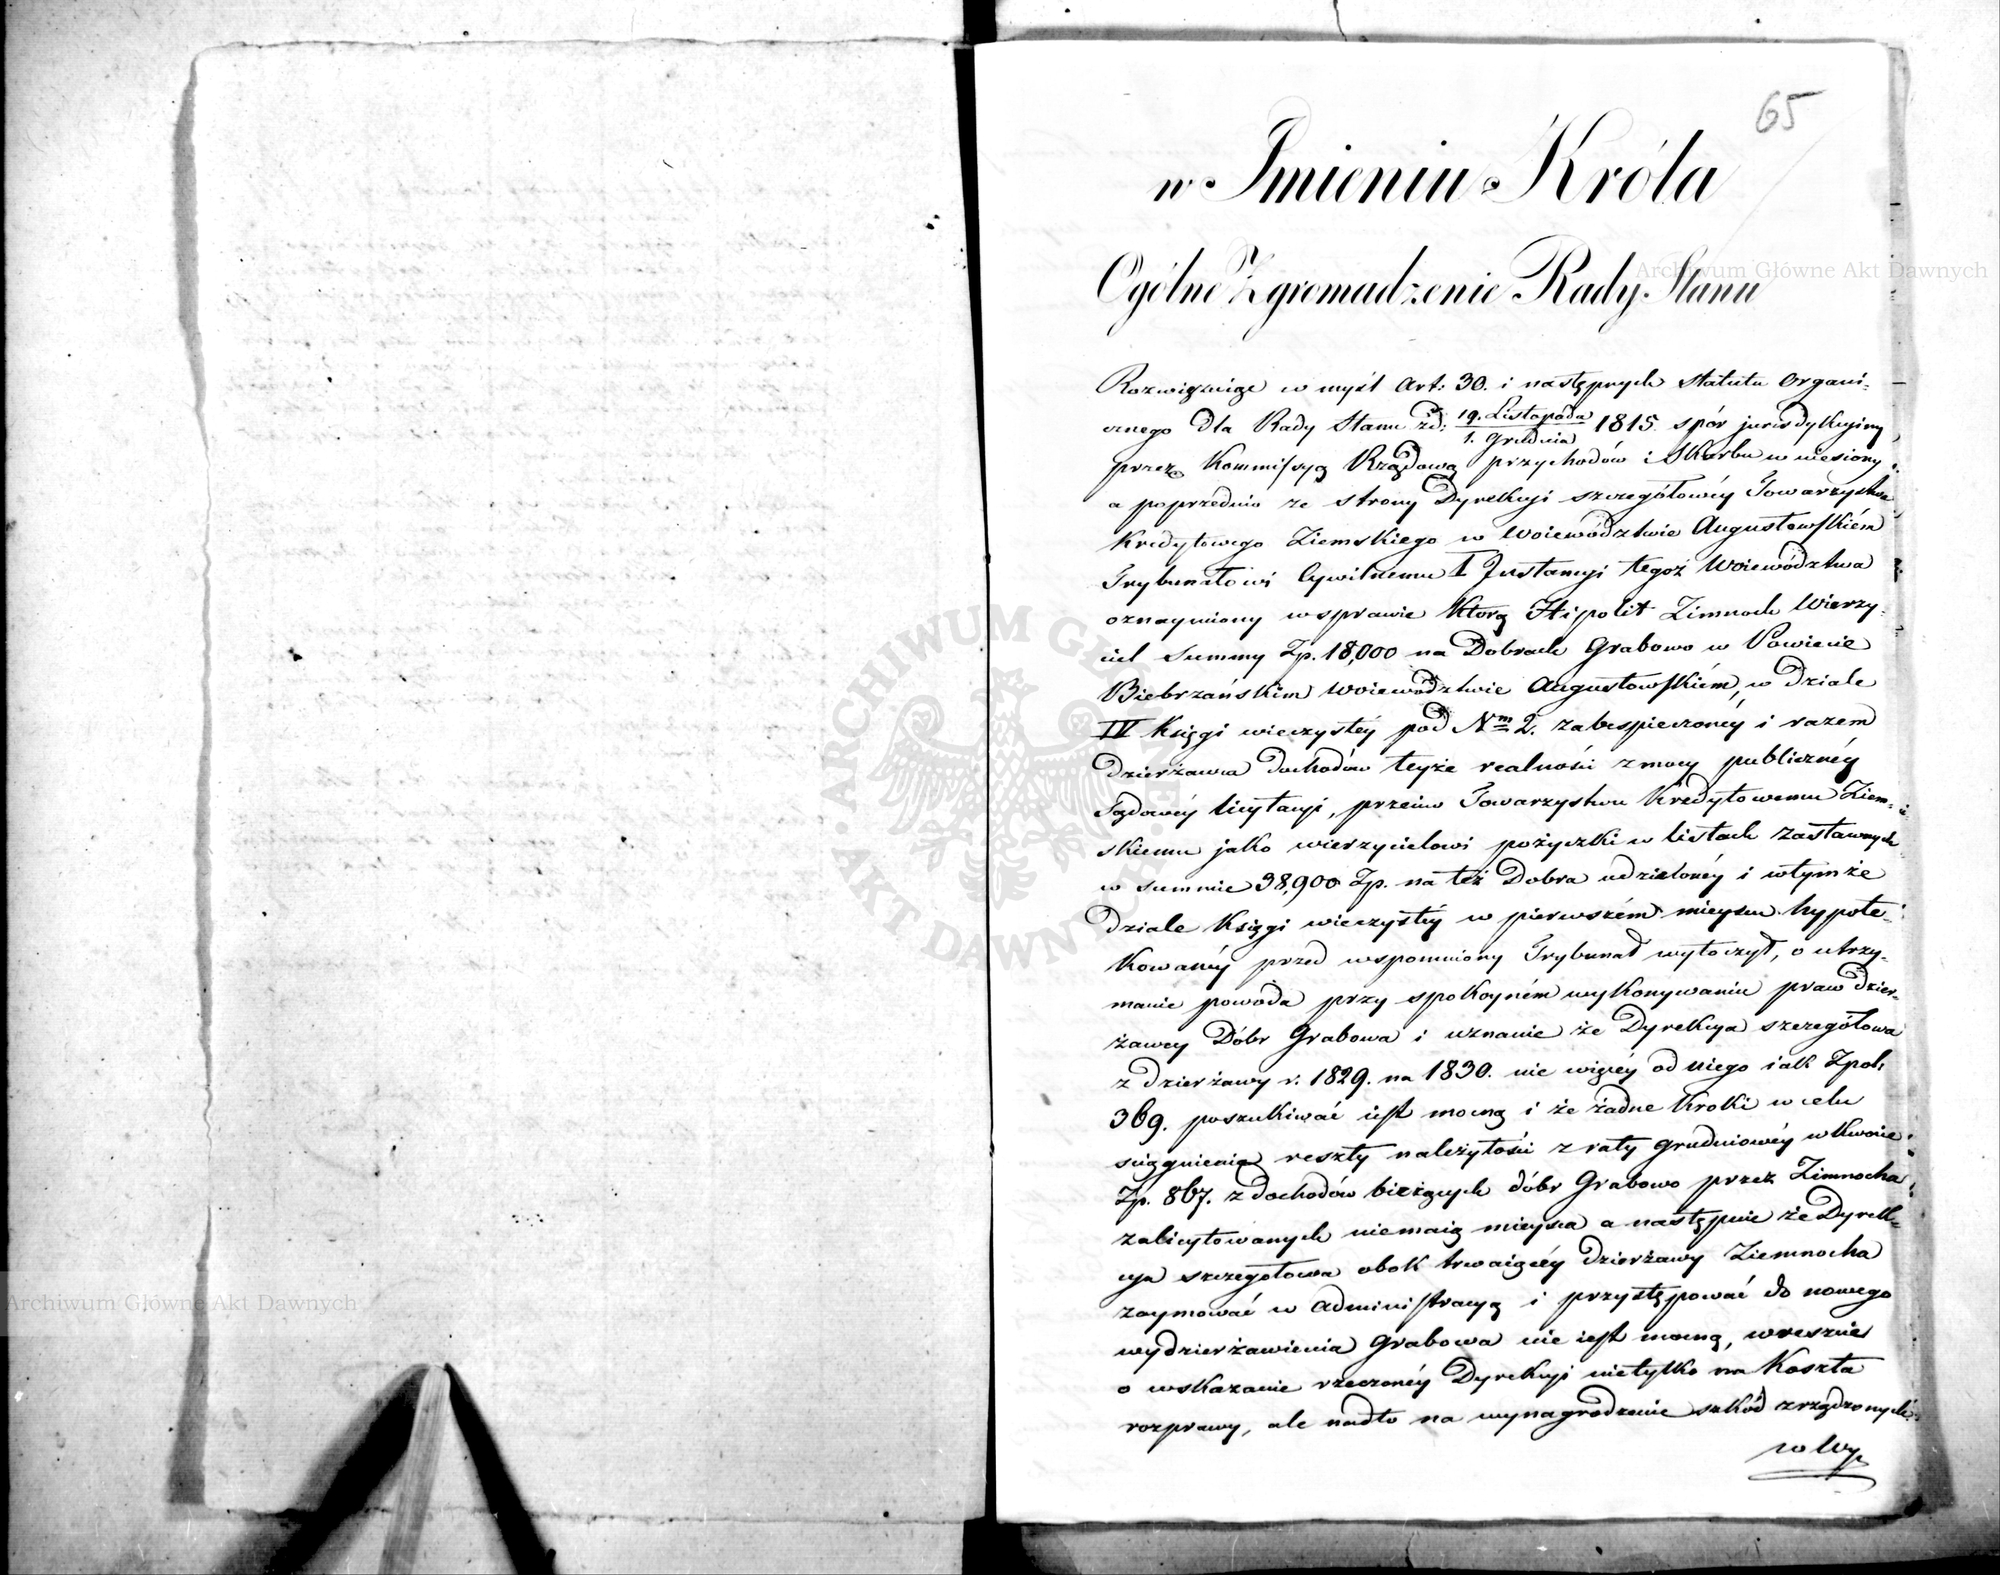 65
w Imieniu Króla
Ogólne Zgromadzenie Rady Stanu
Rozwiązuiąc w myśl Art: 30. i następnych Statutu Organi-
cznego dla Rady Stanu zd: 19. Listopada / 1. Grudnia 1815. spór jurisdykcyiny
przez Kommissyą Rządową przychodów i Skarbu wniesiony
a poprzednio ze strony Dyrekcyi szczegółowéy Towarzystwa
Kredytowego Ziemskiego w Woiewództwie Augustowskiém
Trybunałowi Cywilnemu I Instancyi tegoż Woiewództwa
oznaymiony w sprawie którą Hipolit Zimnoch Wierzy-
ciel Summy Zp. 18,000 na Dobrach Grabowo w Powiecie
Biebrzańskim Woiewództwie Augustowskiém, w dziale
IV Księgi wieczystéy pod Nm 2. zabespieczonéy i razem
dzierżawca dochodów teyże realności z mocy publicznéy
Sądowéy licytacyi, przeciw Towarzystwu Kredytowemu Ziem-
skiemu jako wierzycielowi pożyczki w listach zastawnych
w summie 38,900 Zp. na też Dobra udzielonéy i w tymże
dziale Księgi wieczystéy w pierwszém mieyscu hypote-
kowanéy przed wspomniony Trybunał wytoczył, o utrzy-
manie powoda przy spokoyném wykonywaniu praw dzier-
żawcy Dóbr Grabowa i uznanie że Dyrekcya szczegółowa
z dzierżawy r. 1829. na 1830. nie więcéy od niego iak Zpol:
369. poszukiwać iest mocną i że żadne kroki w celu
ściągnienia reszty należytości z raty grudniowéy w kwocie
Zp. 867. z dochodów bieżących dóbr Grabowo przez Zimnocha
zalicytowanych niemaią mieysca a następnie że Dyrek-
cya szczegółowa obok trwaiącéy dzierżawy Ziemnocha
zaymować w administracyą i przystępować do nowego
wydzierżawienia Grabowa nie iest mocną, wreszcie
o wskazanie rzeczonéy Dyrekcyi nietylko na koszta
rozprawy, ale nadto na wynagrodzenie szkód zrządzonych
w Wy-
Archiwum Główne Akt Dawnych
Archiwum Główne Akt Dawnych
ARCHIWUM GŁÓWNE AKT DAWNYCH